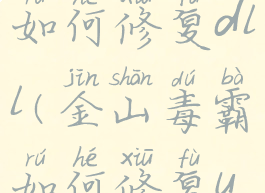 rú hé xiū fù
如何修复dl
jīn shān dú bà
l(金山毒霸
rú hé xiū fù
如何修复y